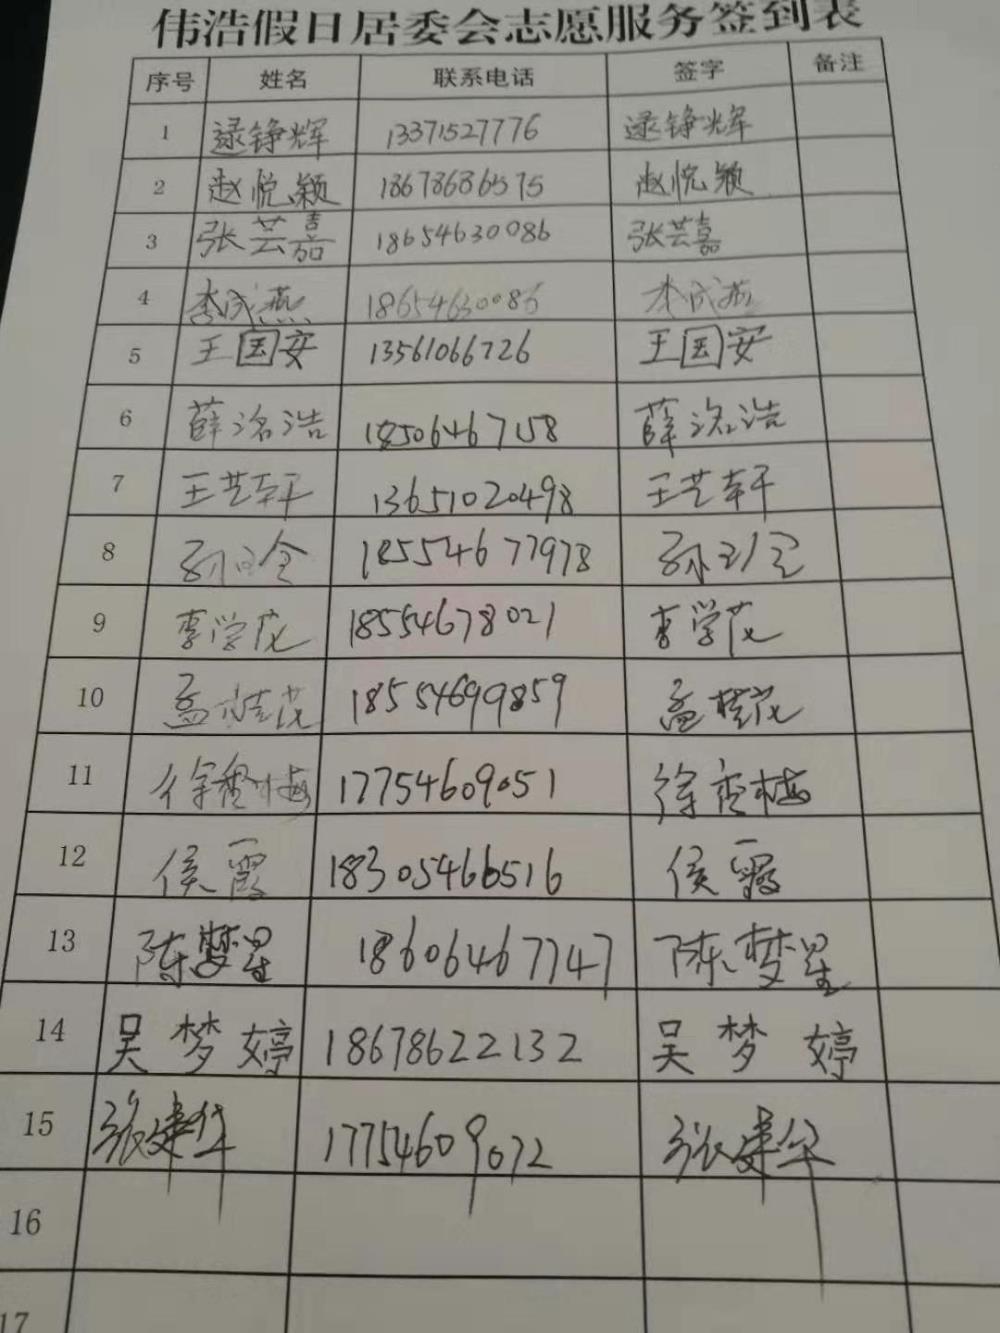 伟浩假日居委会志愿服务签到表
序号 姓名 联系电话 签字 备注
1 逯铮辉 13371527776 逯铮辉
2 赵悦颖 18678686575 赵悦颖
3 张芸嘉 18654630086 张芸嘉
4 李成燕 18654630086 李成燕
5 王国安 13561066726 王国安
6 薛洺浩 18506467158 薛洺浩
7 王艺轩 13651020498 王艺轩
8 孙 18554677978 孙
9 李学花 18554678021 李学花
10 孟桂花 18554699859 孟桂花
11 徐 梅 17754609051 徐 梅
12 侯霞 18305466516 侯霞
13 陈梦星 18606467747 陈梦星
14 吴梦婷 18678622132 吴梦婷
15 张建华 17754609072 张建华
16
17